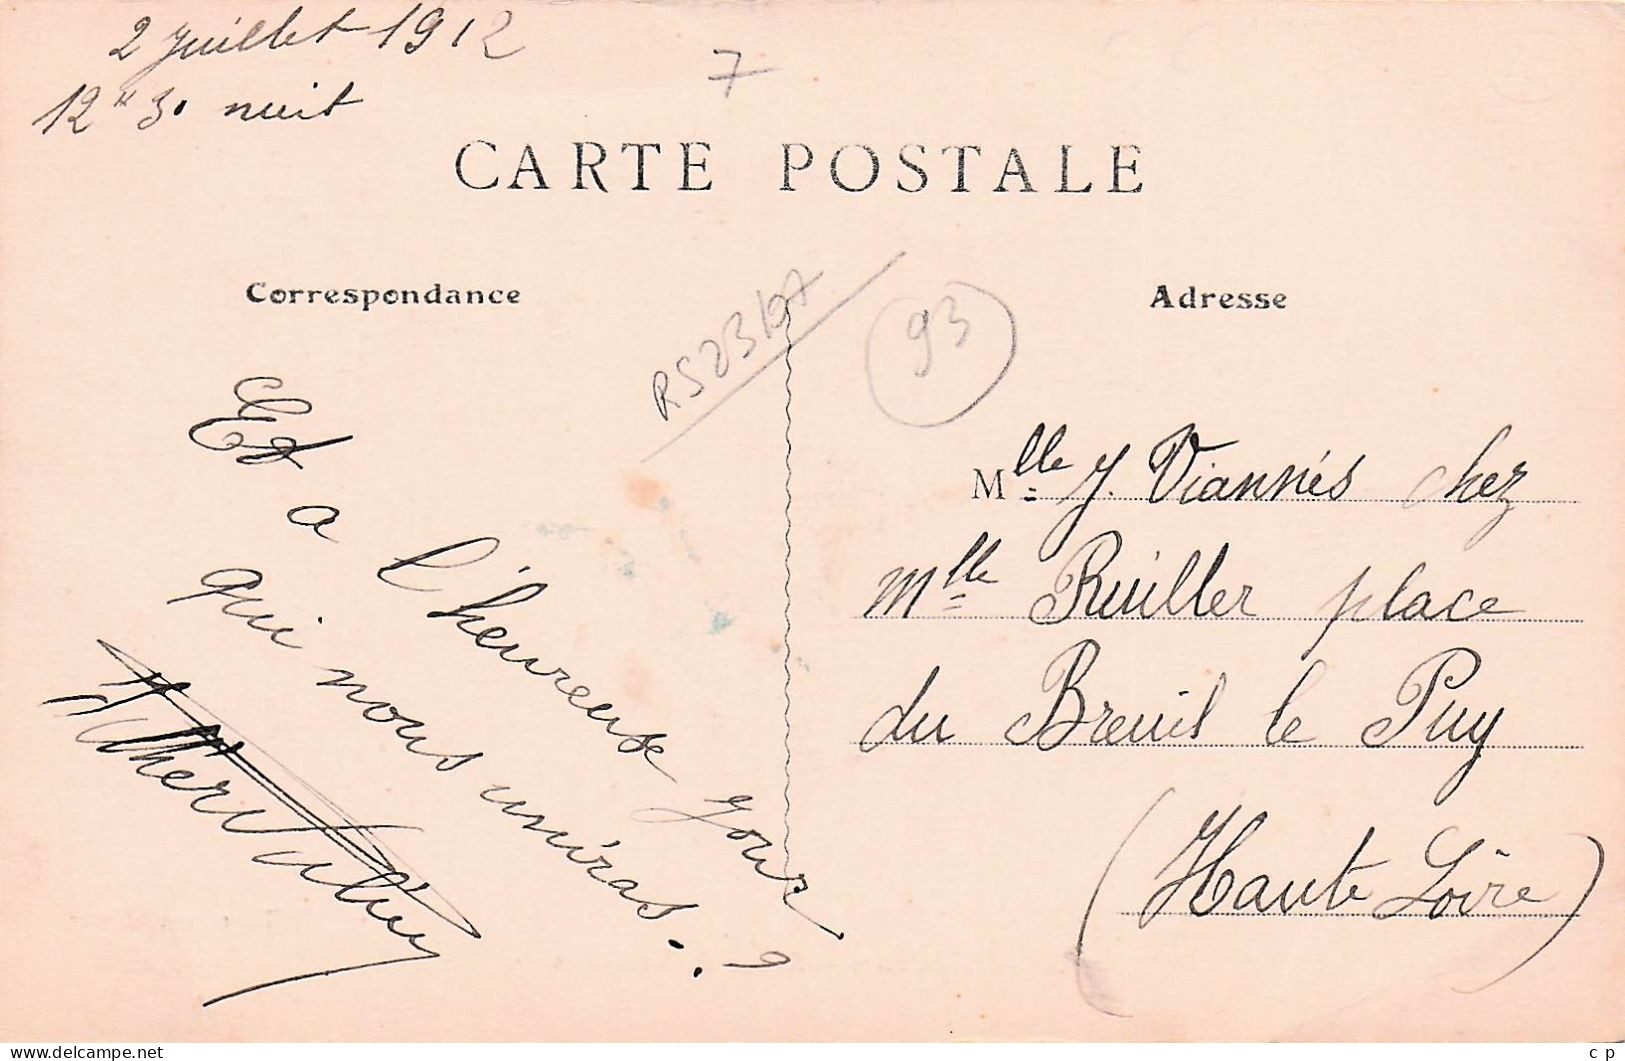 2 juillet 1912
7
12 H 30 nuit
CARTE POSTALE
Correspondance
Adresse
RS23197
93
Et a
l'heureuse jour
qui nous unîras. . ?
Mlle J. Viannés chez
Mlle Ruiller place
du Breuil le Puy
(Haute Loire)
www.delcampe.net
c p